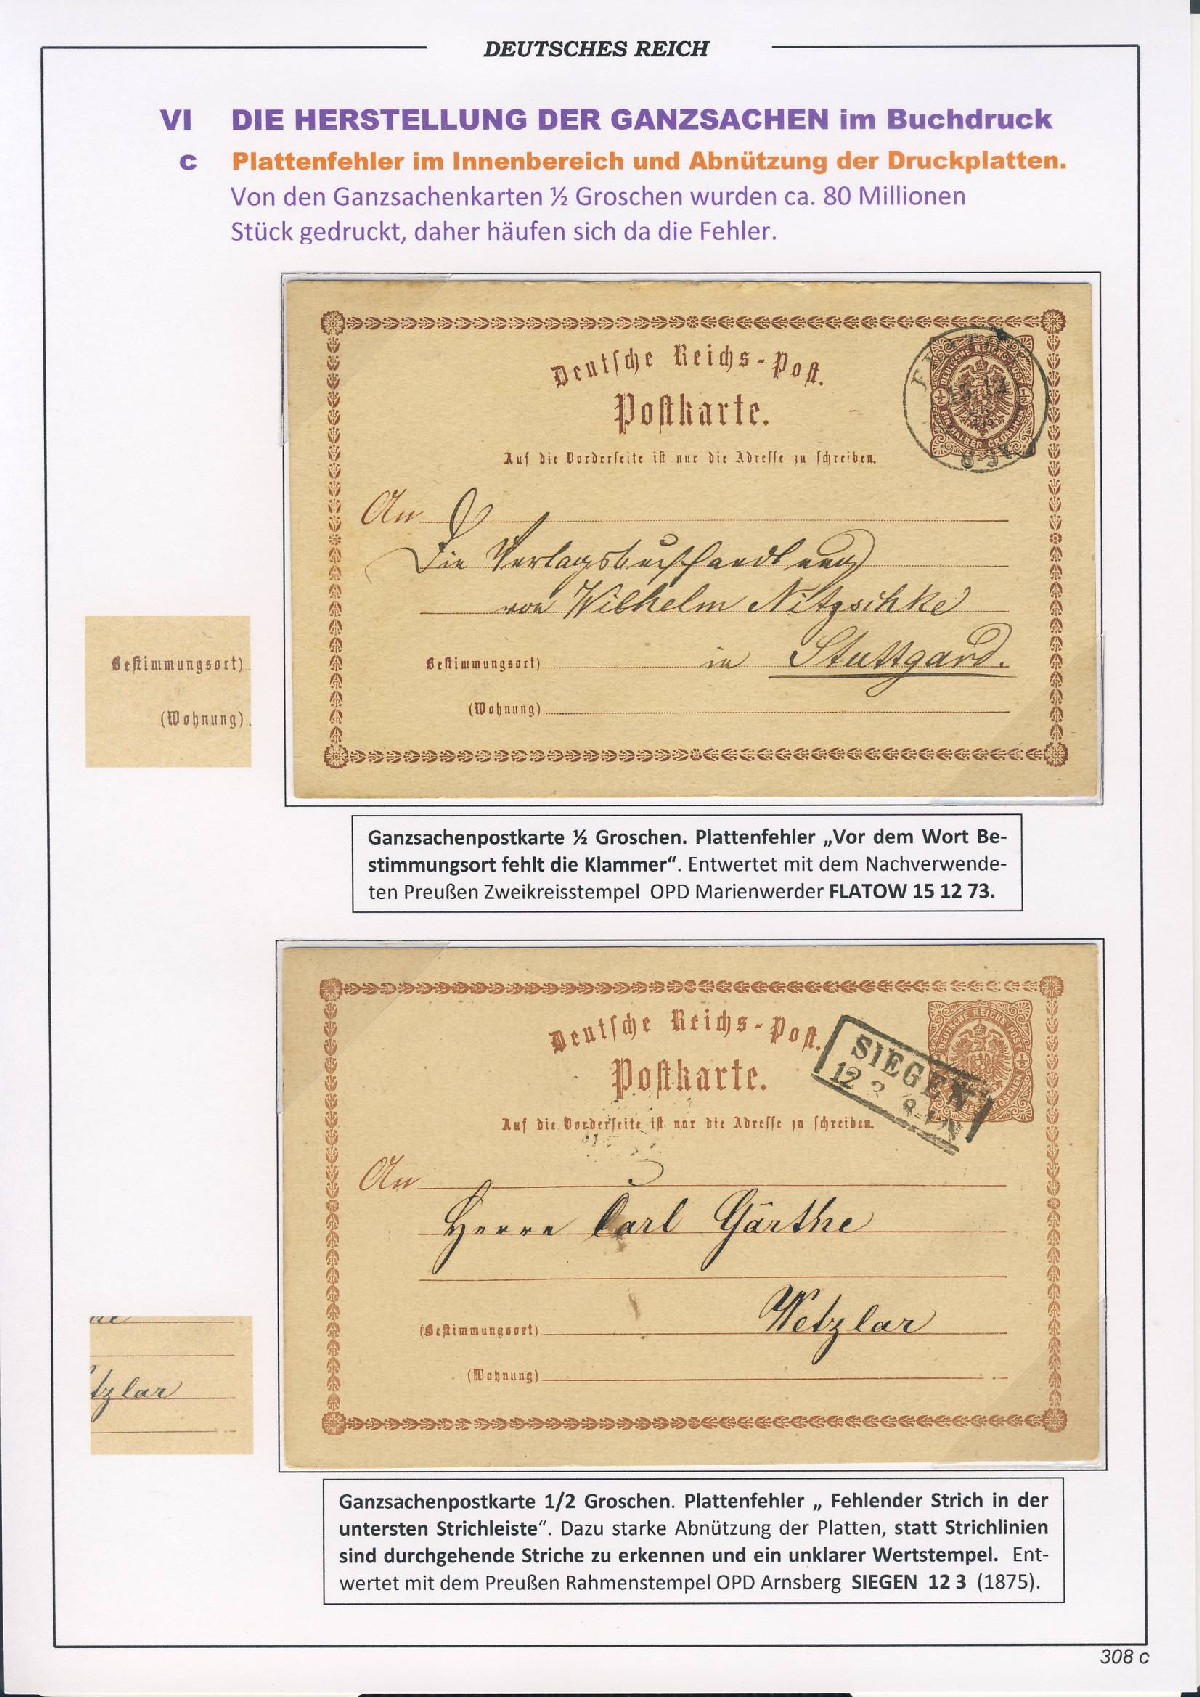 DEUTSCHES REICH
VI DIE HERSTELLUNG DER GANZSACHEN im Buchdruck
C Plattenfehler im Innenbereich und Abnützung der Druckplatten.
Von den Ganzsachenkarten ½ Groschen wurden ca. 80 Millionen
Stück gedruckt, daher häufen sich da die Fehler.
Deutsche Reichs-Post.
Postkarte.
Auf die Vorderseite ist nur die Adresse zu schreiben.
An
Die Verlagsbuchhandlung
von Wilhelm Nitzschke
Bestimmungsort) in Stuttgard.
(Wohnung)
Bestimmungsort)
(Wohnung)
Ganzsachenpostkarte ½ Groschen. Plattenfehler „Vor dem Wort Be-
stimmungsort fehlt die Klammer“. Entwertet mit dem Nachverwende-
ten Preußen Zweikreisstempel OPD Marienwerder FLATOW 15 12 73.
Deutsche Reichs-Post.
Postkarte.
SIEGEN
12 3
Auf die Vorderseite ist nur die Adresse zu schreiben.
An
Herrn Carl Gärthe
Wetzlar
(Bestimmungsort)
(Wohnung)
tzlar
Ganzsachenpostkarte 1/2 Groschen. Plattenfehler „ Fehlender Strich in der
untersten Strichleiste“. Dazu starke Abnützung der Platten, statt Strichlinien
sind durchgehende Striche zu erkennen und ein unklarer Wertstempel. Ent-
wertet mit dem Preußen Rahmenstempel OPD Arnsberg SIEGEN 12 3 (1875).
308 c